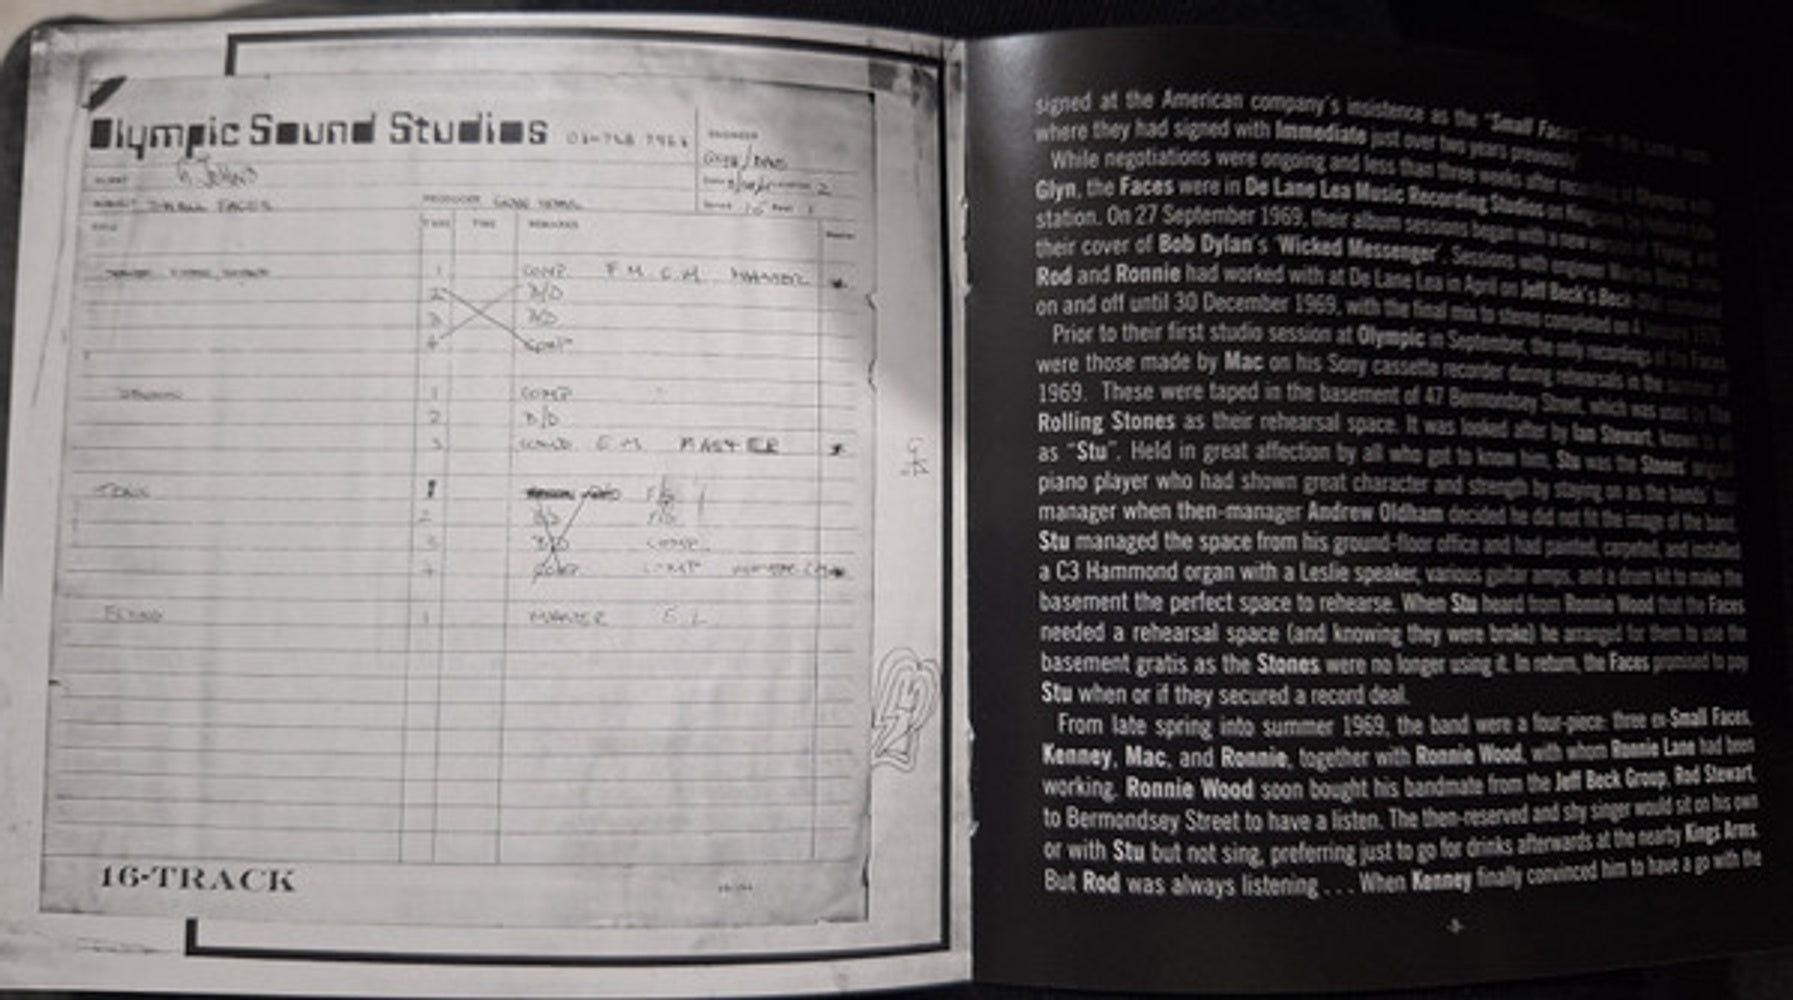 Olympic Sound Studios
G. Johns
SMALL FACES
PRODUCER
TIME
REMARKS
1 COMP. MASTER
2 B/D
3 B/D
4 COMP
1 COMP
2 B/D
3 MASTER
1
2 B/D
3 B/D COMP
4 COMP
FLYING 1 MASTER
16-TRACK
signed at the American company's insistence as the "Small Faces"
where they had signed with Immediate just over two years previously
While negotiations were ongoing and less than three weeks after recording at Olympic with
Glyn, the Faces were in De Lane Lea Music Recording Studios on Kingsway by Holborn tube
station. On 27 September 1969, their album sessions began with a new version of 'Flying' and
their cover of Bob Dylan's 'Wicked Messenger'. Sessions with engineer Martin Birch
Rod and Ronnie had worked with at De Lane Lea in April on Jeff Beck's Beck-Ola continued
on and off until 30 December 1969, with the final mix to stereo completed on 4 January 1970.
Prior to their first studio session at Olympic in September, the only recordings of the Faces
were those made by Mac on his Sony cassette recorder during rehearsals in the summer of
1969. These were taped in the basement of 47 Bermondsey Street, which was used by The
Rolling Stones as their rehearsal space. It was looked after by Ian Stewart, known to all
as "Stu". Held in great affection by all who got to know him, Stu was the Stones' original
piano player who had shown great character and strength by staying on as the bands'
manager when then-manager Andrew Oldham decided he did not fit the image of the band.
Stu managed the space from his ground-floor office and had painted, carpeted, and installed
a C3 Hammond organ with a Leslie speaker, various guitar amps, and a drum kit to make the
basement the perfect space to rehearse. When Stu heard from Ronnie Wood that the Faces
needed a rehearsal space (and knowing they were broke) he arranged for them to use the
basement gratis as the Stones were no longer using it. In return, the Faces promised to pay
Stu when or if they secured a record deal.
From late spring into summer 1969, the band were a four-piece: three ex-Small Faces,
Kenney, Mac, and Ronnie, together with Ronnie Wood, with whom Ronnie Lane had been
working. Ronnie Wood soon bought his bandmate from the Jeff Beck Group, Rod Stewart,
to Bermondsey Street to have a listen. The then-reserved and shy singer would sit on his own
or with Stu but not sing, preferring just to go for drinks afterwards at the nearby Kings Arms.
But Rod was always listening . . . When Kenney finally convinced him to have a go with the